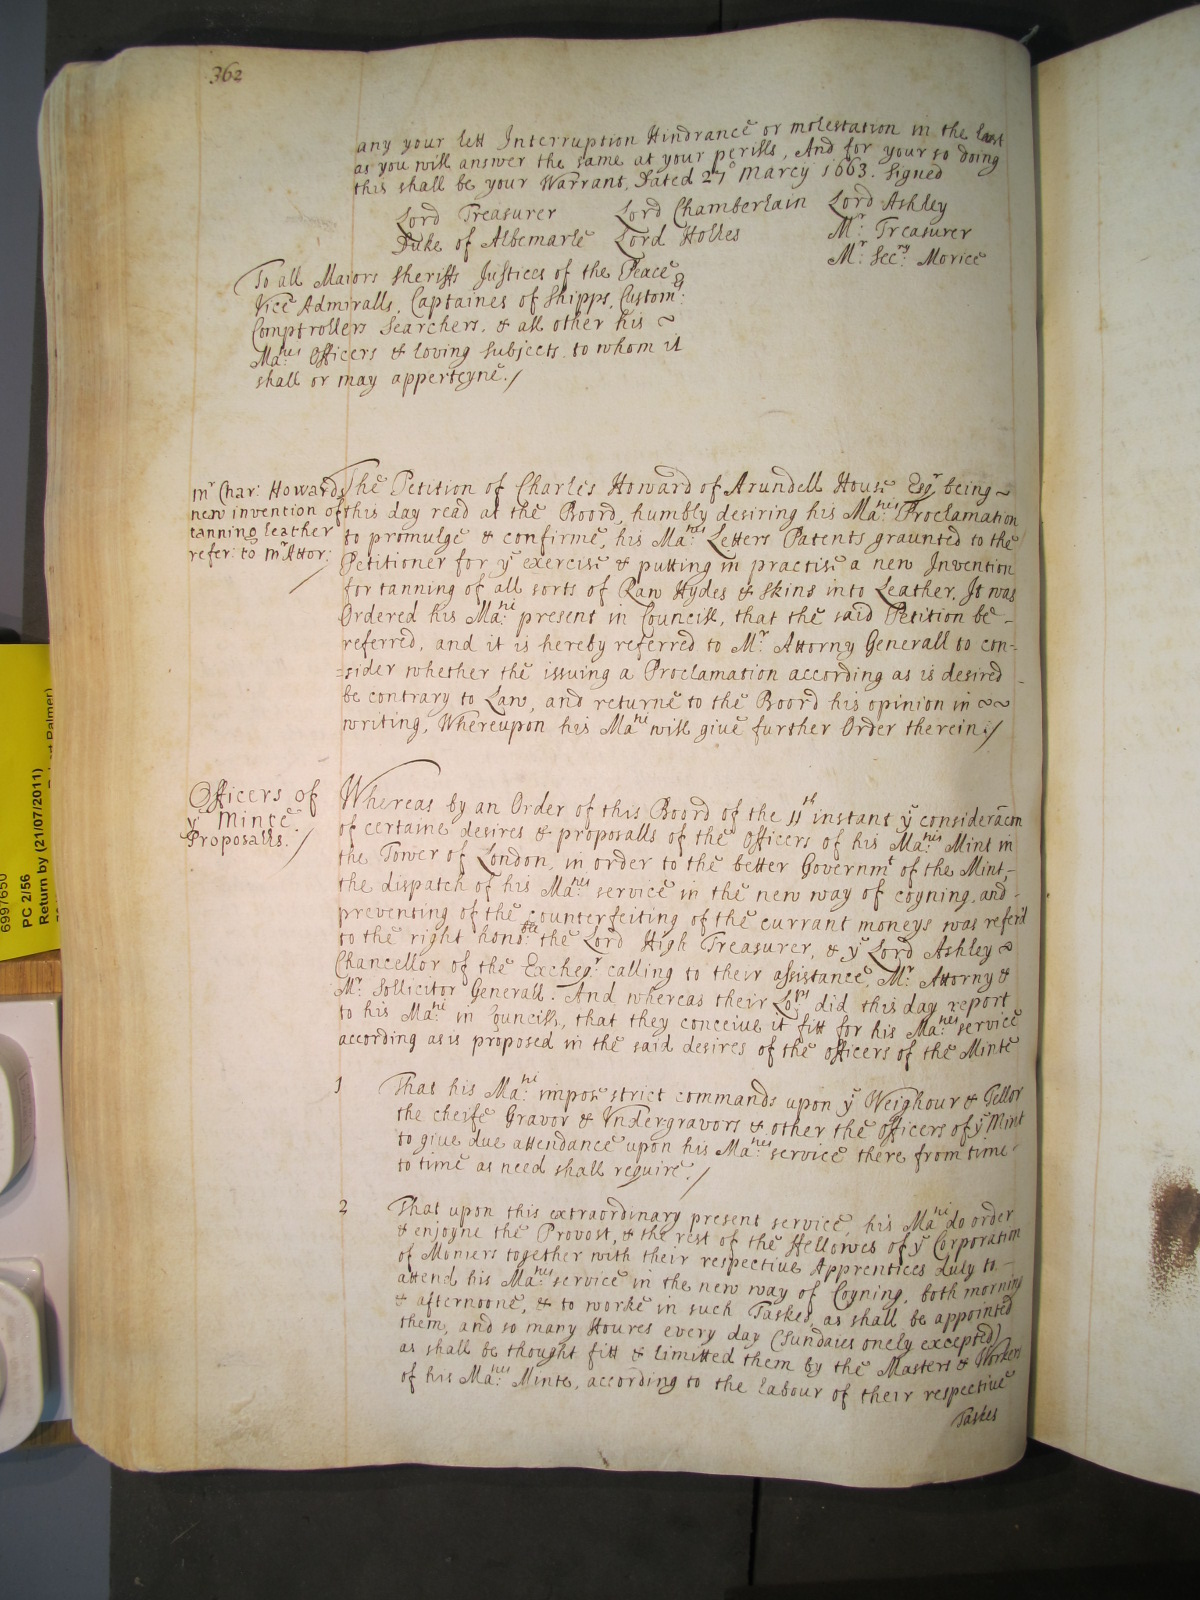 362
any your lett Interruption Hindrance or molestation in the least
as you will answer the same at your perills, And for your so doing
this shall be your Warrant, Dated 27° Marcy 1663. Signed
Lord Treasurer Lord Chamberlain Lord Ashley
Duke of Albemarle Lord Holles Mr. Treasurer
Mr. Secry. Morice
To all Maiors Sheriffs Justices of the Peace
Vice Admiralls, Captaines of Shipps, Custom:
Comptrollers Searchers, & all other his ~
Ma:ties Officers & loving Subjects to whom it
shall or may apperteyne./
mr Char: Howards
new invention of
tanning leather
refer: to mr Attor:
/
The Petition of Charles Howard of Arundell House Esqr. being ~
this day read at the Boord, humbly desiring his Ma:ties Proclamation
to promulge & confirme, his Ma:ties Letters Patents graunted to the
Petitioner for ye exercise & putting in practise a new Invention
for tanning of all sorts of Raw Hydes & Skins into Leather. It was
Ordered his Ma:tie present in Councill, that the said Petition be -
referred, and it is hereby referred to Mr. Attorny Generall to con-
=sider whether the issuing a Proclamation according as is desired -
be contrary to Law, and returne to the Boord his opinion in ~~
writing, Whereupon his Matie will give further Order therein:/
Officers of
ye Minte
Proposalls. /
Whereas by an Order of this Board of the 11th instant ye consideracon
of certaine desires & proposalls of the Officers of his Ma:ties Mint in
the Tower of London, in order to the better Governmt of the Mint,-
the dispatch of his Ma:ties service in the new way of coyning, and -
preventing of the counterfeiting of the currant moneys was referd
to the right hono:ble the Lord High Treasurer, & ye Lord Ashley ~
Chancellor of the Excheqr calling to their assistance, Mr. Attorny &
Mr. Sollicitor Generall. And whereas their Lo:pps did this day report
to his Ma:tie in Councill, that they conceive it fitt for his Ma:ties service
according as is proposed in the said desires of the officers of the Minte
1 That his Ma:tie impose strict commands upon ye Weighour & Tellor
the cheife Gravor & Vndergravors & other the officers of ye Mint
to give due attendance upon his Ma:ties service there from time-
to time as need shall require./
2 That upon this extraordinary present service, his Matie do order
& enjoyne the Provost, & the rest of the Hellowes of ye Corporation
of Moniers together with their respective Apprentices duly to -
attend his Ma:ties service in the new way of Coyning, both morning
& afternoone, & to worke in such Taskes, as shall be appointed
them, and so many Houres every day (Sundaies onely excepted)
as shall be thought fitt & limitted them by the Masters & Workers
of his Ma:ties Minte, according to the labour of their respective
Taskes
6997650
PC 2/56
Return by (21/07/2011)
Palmer)